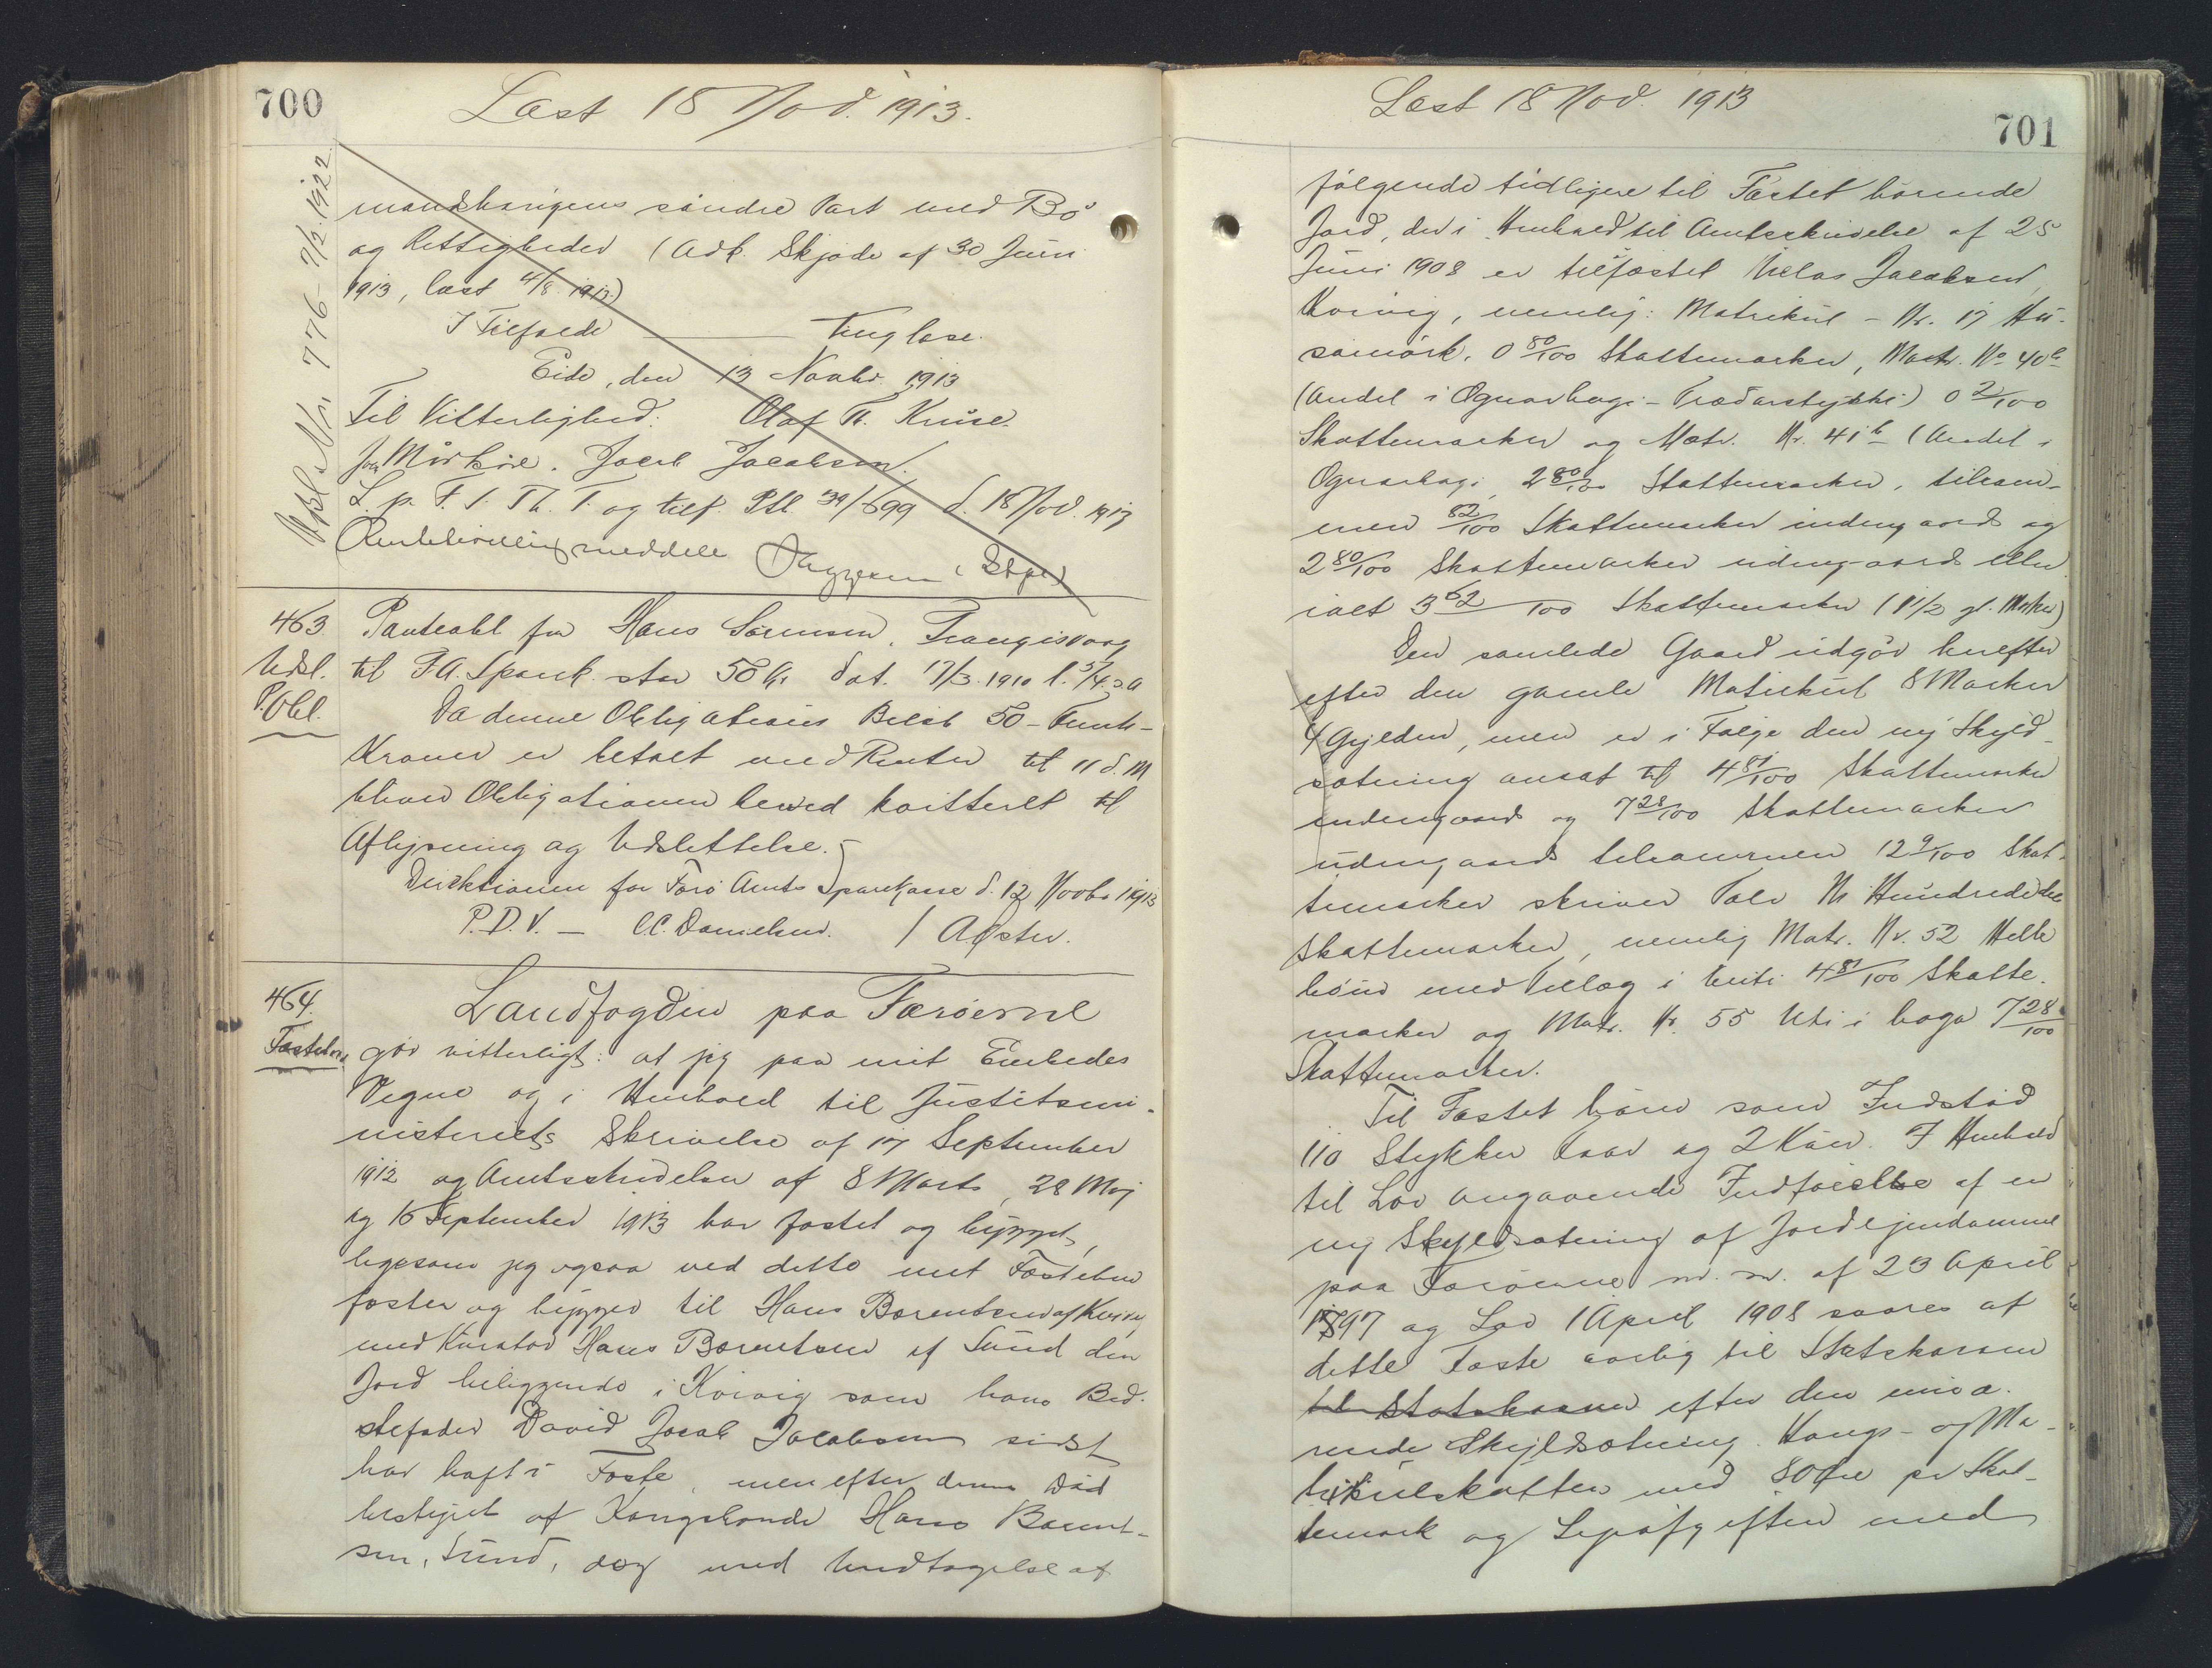 700
Læst 18 Nov. 1913.
Afl. Nr. 776 - 7/2 1922
mandshavigens søndre Part med Bø
og Rettigheder (Adk. Skjøde af 30 Juni
1913, læst 4/8 1913)
I Tilfælde Tinglæse.
Eide, den 13 Novbr. 1913
Til Vitterlighed: Olaf Th. Kruse.
Joh Mørkøre. Jacob Jacobsen.
L. p. F. S. Th. T. og tilf. Ptl. 39/699 d. 18 Nov. 1913
meddelt
463. Panteobl fra Hans Sørensen, Trangisvaag
Udsl. til F.A. Spark. stor 50 Kr dat. 17/3 1910 l. 5/4 s.A
P.Obl. Da denne Obligations Beløb 50 - Femti-
Kroner er betalt med Renter til 11 d. M
bliver Obligationen herved kvitteret til
Aflysning og Udslettelse.
Direktionen for Færø Amts Sparekasse d. 12 Novbr 1913
P.D.V. - C.C. Danielsen. / A Øster.
464. Landfogden paa Færøerne
Fæstebrev gør vitterligt: at jeg paa mit Embedes
Vegne og i Henhold til Justitsmi-
nisteriets Skrivelse af 17 September
1912 og Amtsskrivelser af 8 Marts, 28 Maj
og 16 September 1913 har fæstet og bygget,
ligesom jeg ogsaa ved dette mit Fæstebrev
fæster og bygger til Hans Berentsen af Kvivig
med Kurator Hans Berentsen af Sund den
Jord beliggende i Kvivig som hans Bed-
stefader David Jacob Jacobsen sidst
har haft i Fæste, men efter dennes Død
bestyret af Kongsbonde Hans Berent-
sen, Sund, dog med Undtagelse af
Læst 18 Nov. 1913
701
følgende tidligere til Fæstet hørende
Jord, der i Henhold til Amtsskrivelse af 25
Juni 1908 er tilfæstet Niclas Jacobsen
Kvivig, nemlig: Matrikul - Nr. 17 Hu-
samørk, 0 80/100 Skattemarker, Matr. No 40b
(Andel i Ognarhagi - Trædarstykki) 0 2/100
Skattemarker og Matr. Nr. 41b (Andel i
Ognarhagi, 2 80/100 Skattemarker, tilsam-
men 82/100 Skattemarker indengaards og
2 80/100 Skattemarker udengaards eller
ialt 3 62/100 Skattemarker (1 1/2 gl. Marker)
Den samlede Gaard udgør herefter
efter den gamle Matrikul 8 Marker
4 Gylden, men er i Følge den ny Skyld-
sætning ansat til 4 81/100 Skattemarker
indengaards og 7 28/100 Skattemarker
udengaards tilsammen 12 9/100 Skat-
temarker skriver Tolv Ni Hundrededele
Skattemarker, nemlig Matr. Nr. 52 Helle
bønir med Tillæg i Heiti 4 81/100 Skatte-
marker og Matr. Nr. 55 Uti i haga 7 28/100
Skattemarker.
Til Fæstet hører som Indstød
110 Stykker Faar og 2 Køer. I Henhold
til Lov angaaende Indførelse af en
ny Skyldsætning af Jordejendomme
paa Færøerne m. m. af 23 April
1897 og Lov 1 April 1908 svares af
dette Fæste aarlig til Statskassen
til Statskassen efter den nuvæ-
rende Skyldsætning Kongs- og Ma-
trikulskatten med 80 Øre pr Skat-
temark og Lepafgiften med